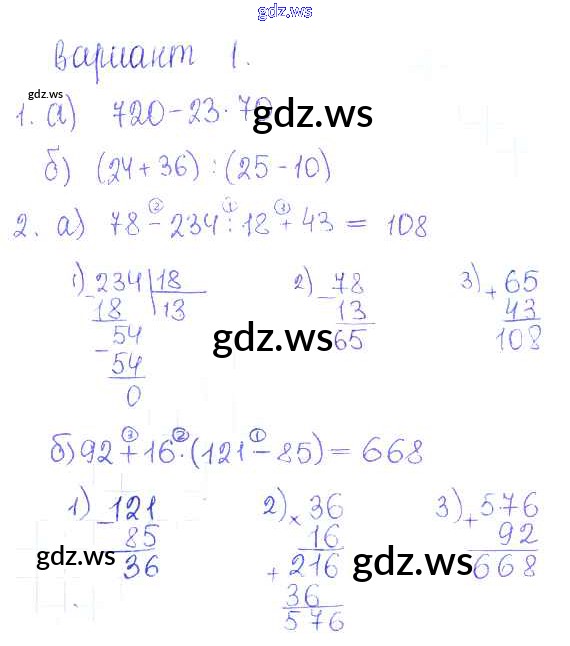 gdz.ws
Вариант 1.
gdz.ws
1. а) 720 - 23 · 70
gdz.ws
б) (24 + 36) : (25 - 10)
2 1 3
2. а) 78 - 234 : 18 + 43 = 108
1) 234 | 18    2) 78    3) 65
- 18 | 13    - 13    + 43
54    65    108
- 54    gdz.ws
0
3 2 1
б) 92 + 16 · (121 - 85) = 668
1) - 121    2) × 36    3) + 576
85    16    92
gdz.ws 36    + 216    gdz.ws 668
36
576